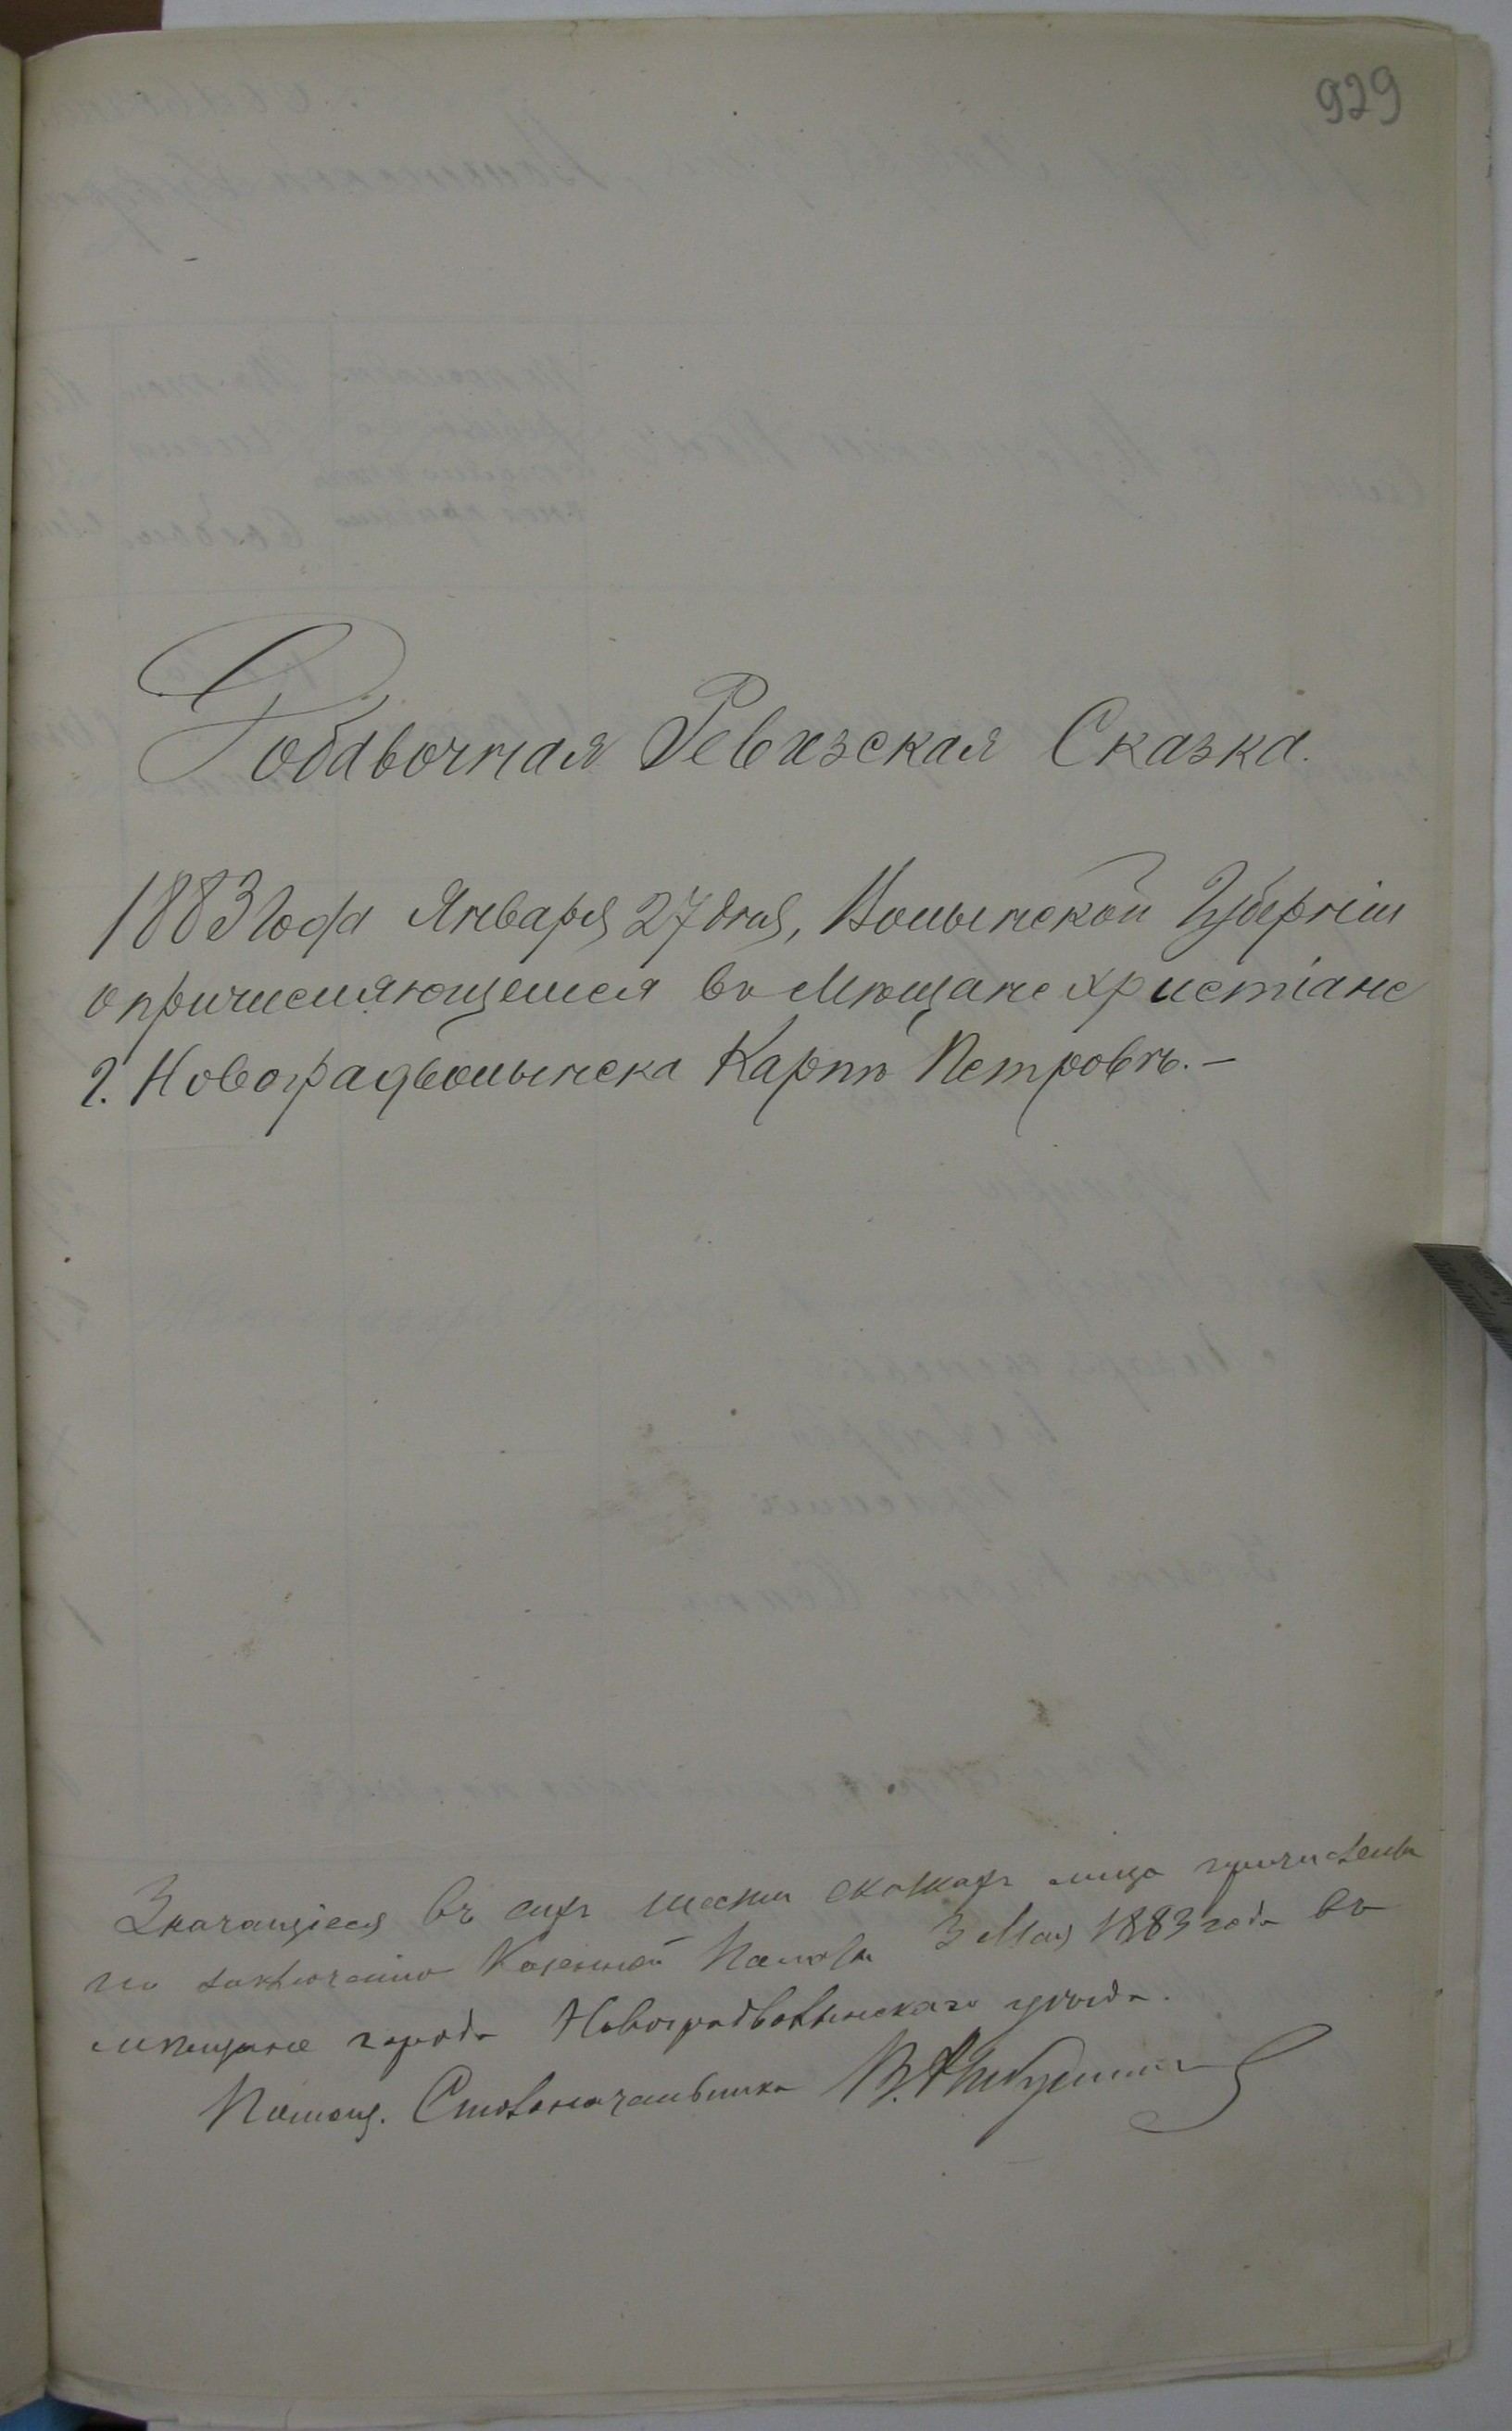 929
Добавочная Ревизская Сказка.
1883 года Января 27 дня, Волынской Губерніи
о причисляющемся въ Мѣщане христіане
г. Новоградволынска Карпѣ Петровѣ.—
Значащіеся въ сихъ шести сказкахъ лица причислены
по заключенію Казенной Палаты 3 Мая 1883 года въ
мѣщане города Новоградволынскаго уѣзда.
Помощ. Столоначальника В.